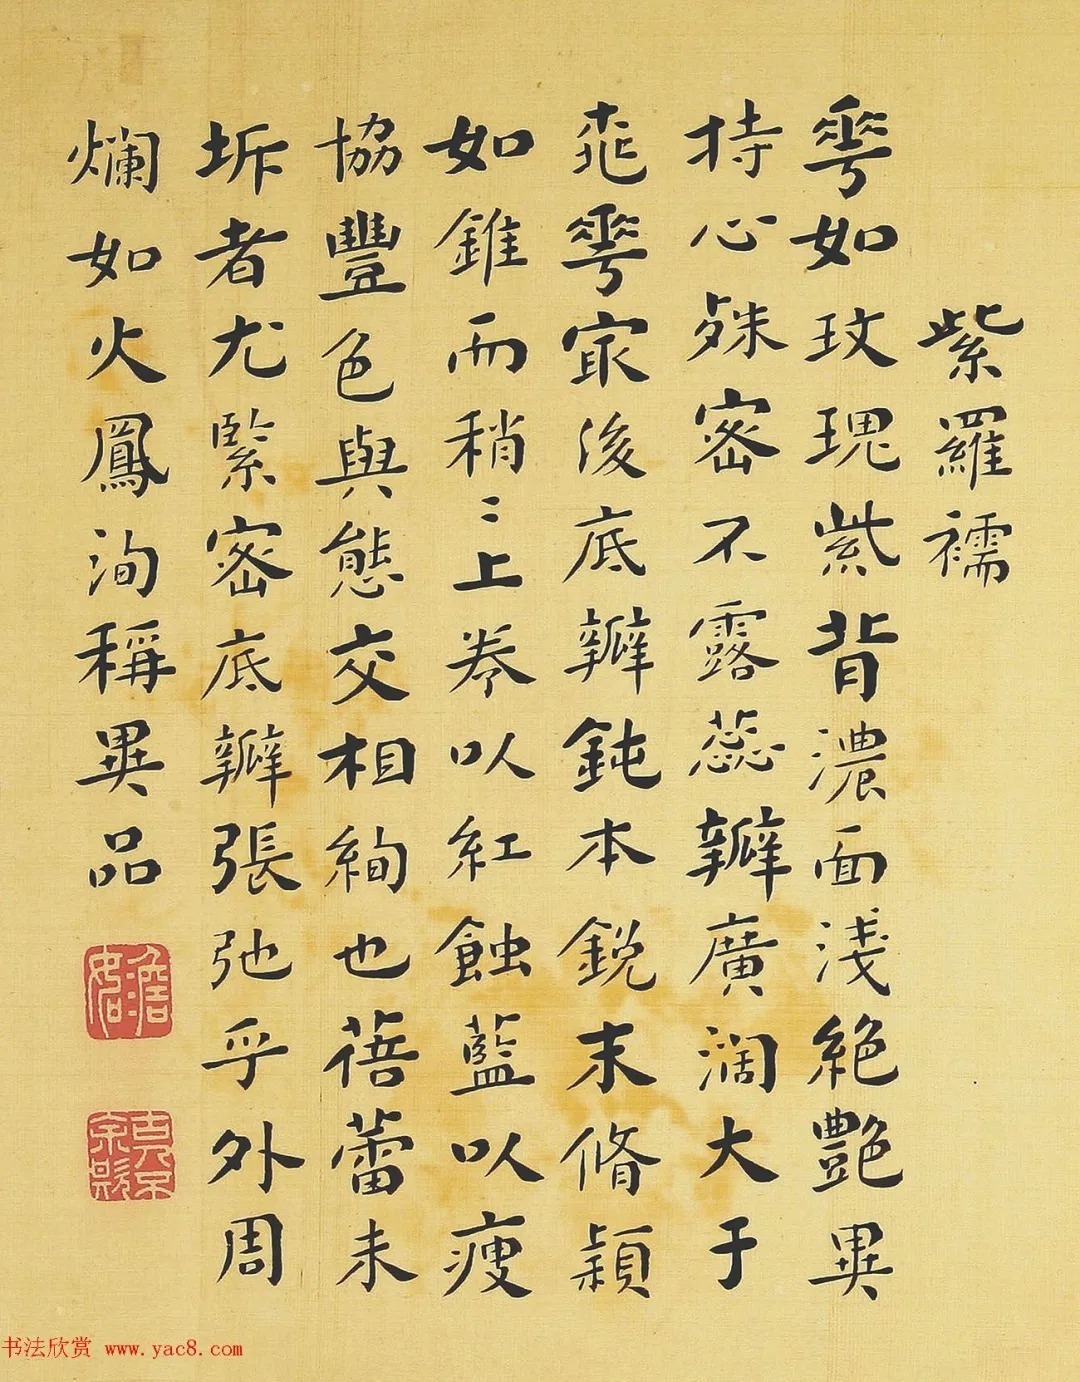 紫羅襦
雩如玫瑰紫背濃面淺絶艷異
持心殊密不露蕊瓣廣濶大于
雩冣後底瓣鈍本鋭末脩穎
如錐而稍〻上卷以紅蝕藍以瘦
協豐色與態交相絢也蓓蕾未
坼者尤緊密底瓣張弛乎外周
爛如火鳳洵稱異品
书法欣赏 www.yac8.com